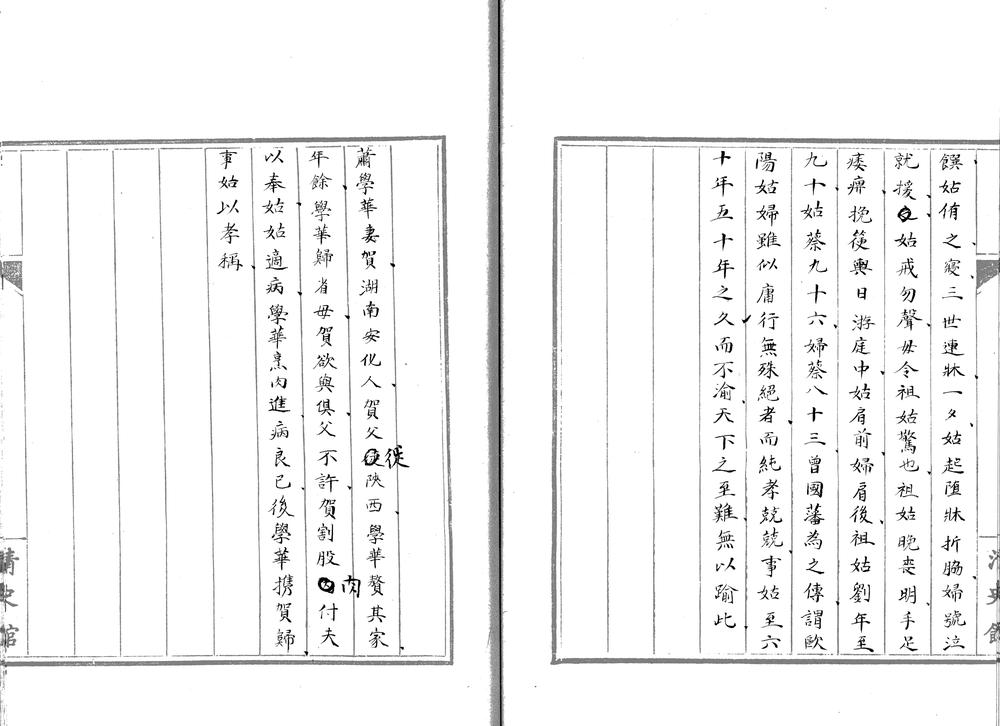 饌姑侑之寢三世連牀一夕姑起墮牀折脇婦號泣
就援姑戒勿聲毋令祖姑驚也祖姑晚喪明手足
痿痹挽筱輿日游庭中姑肩前婦肩後祖姑劉年至
九十姑蔡九十六婦蔡八十三曾國藩為之傳謂歐
陽姑婦雖似庸行無殊絕者而純孝兢兢事姑至六
十年五十年之久而不渝天下之至難無以踰此
蕭學華妻賀湖南安化人賀父從陝西學華贅其家
年餘學華歸省母賀欲與俱父不許賀割股肉付夫
以奉姑姑適病學華烹肉進病良已後學華攜賀歸
事姑以孝稱
清史館
清史館